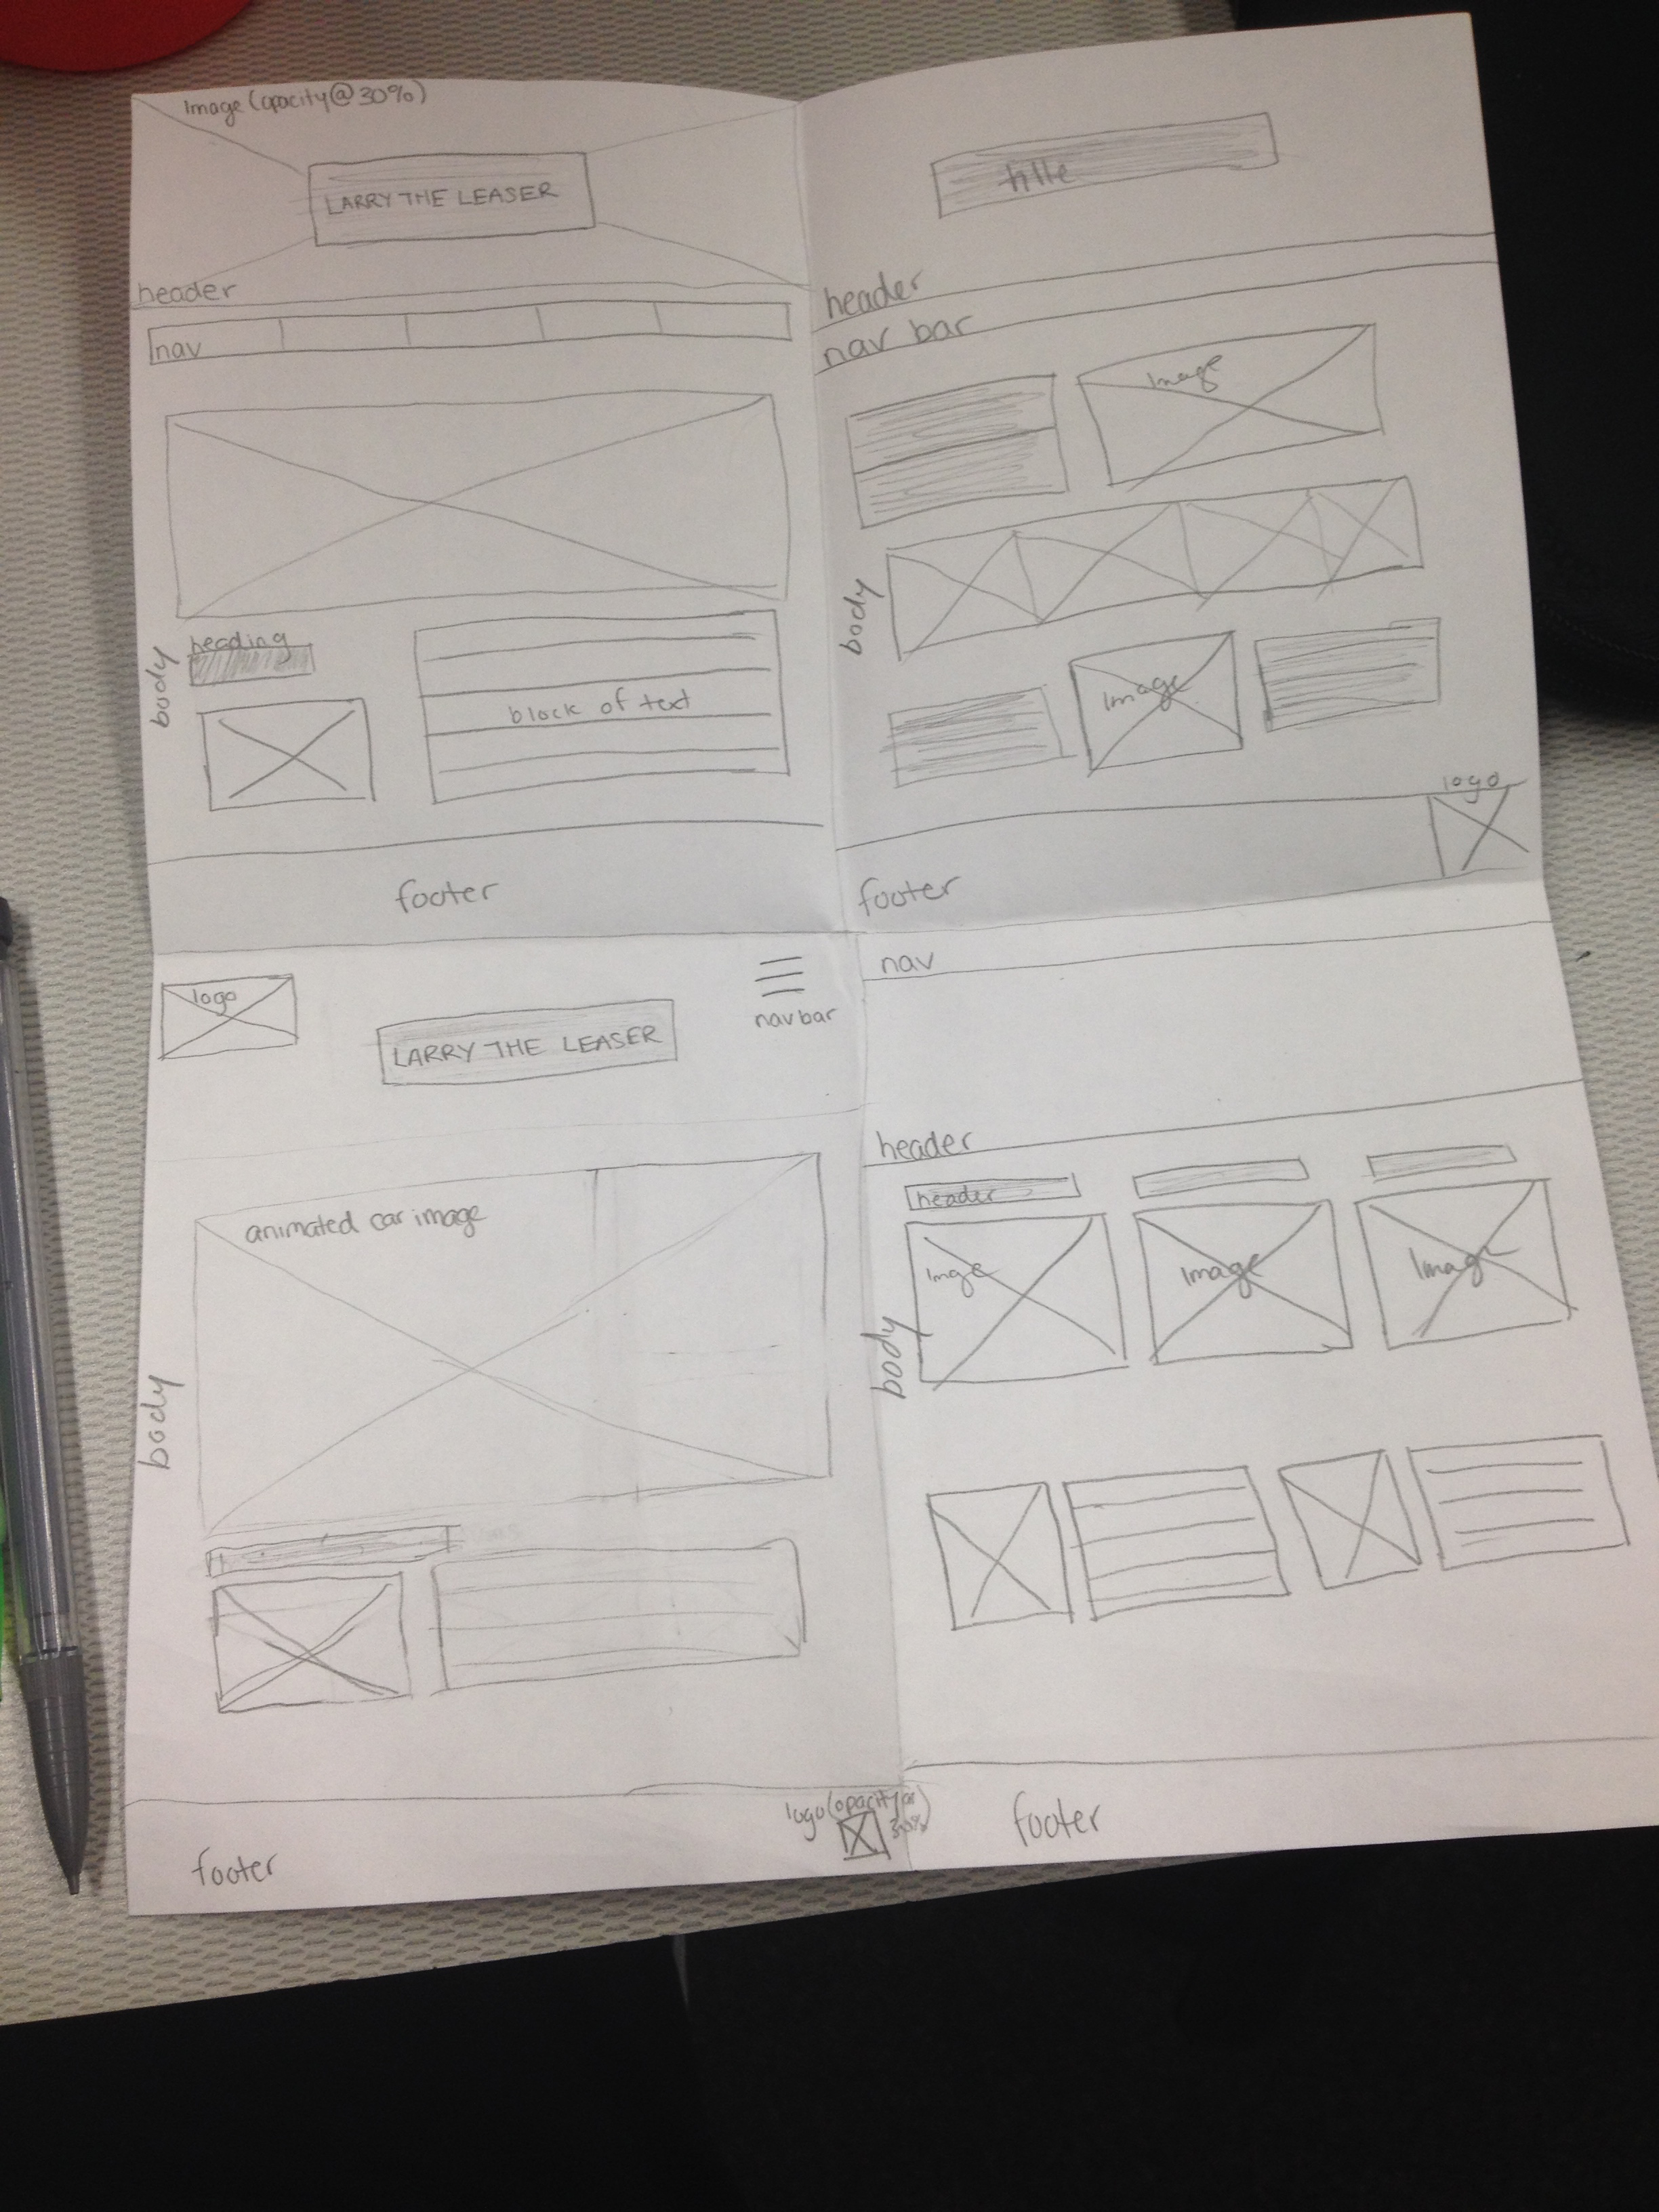 Image (opacity@30%)
LARRY THE LEASER
header
nav
heading
block of text
body
footer
title
header
nav bar
Image
body
Image
logo
footer
logo
LARRY THE LEASER
navbar
animated car image
body
logo (opacity@
30%
footer
nav
header
header
Imge
Image
Image
body
footer